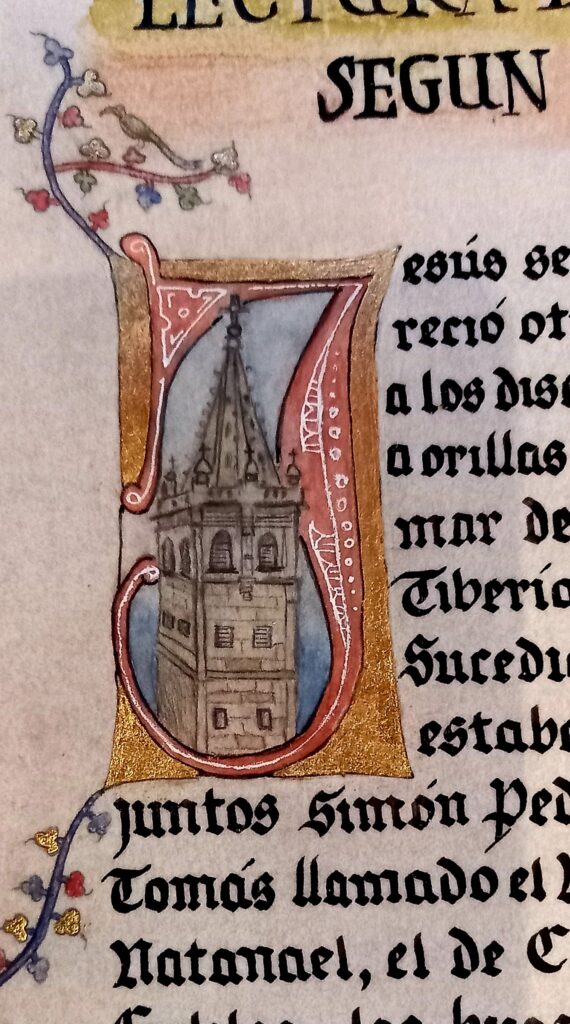 LECTURA D
SEGUN
Jesús se
reció ot
a los disc
a orillas
mar de
Tiberia
Sucedi
estaba
juntos Simón Ped
Tomás llamado el
Natanael, el de C